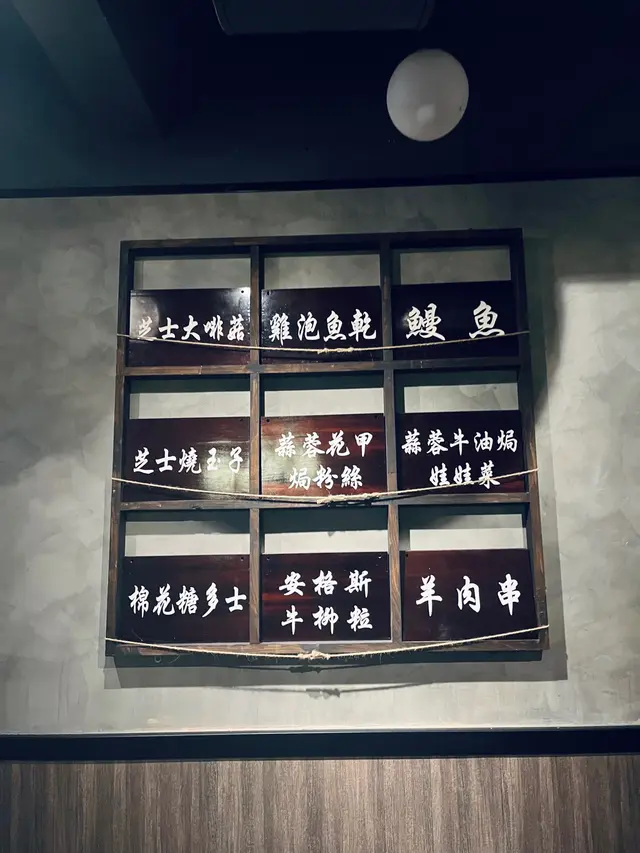 芝士大啡菇
雞泡魚乾
鰻魚
芝士燒玉子
蒜蓉花甲
焗粉絲
蒜蓉牛油焗
娃娃菜
棉花糖多士
安格斯
牛柳粒
羊肉串